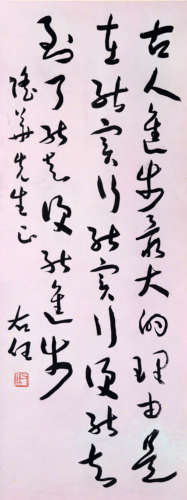 古人進步最大的理由是
在能實行能實行便能知
到了能知便能進步
華先生正
右任